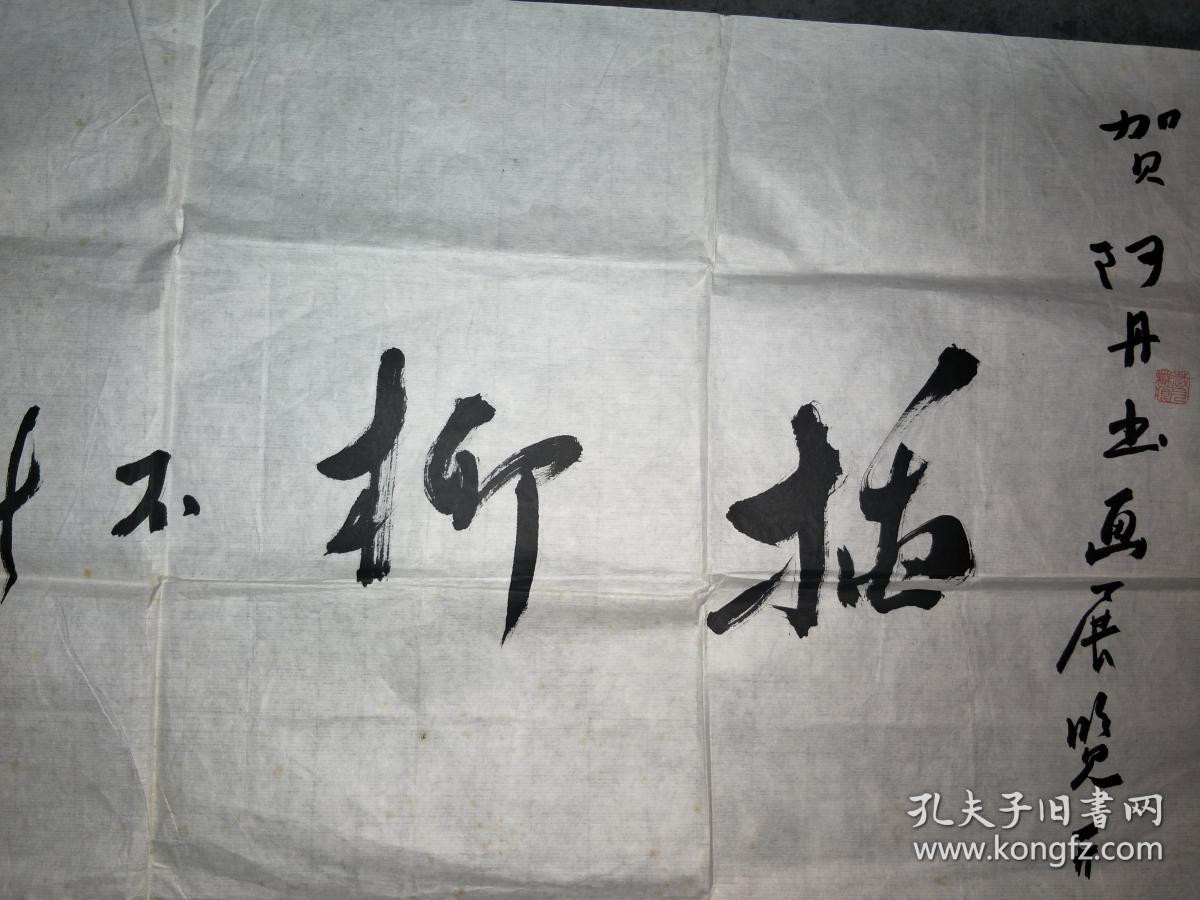 贺阿丹书画展览
插柳不
孔夫子旧书网
www.kongfz.com